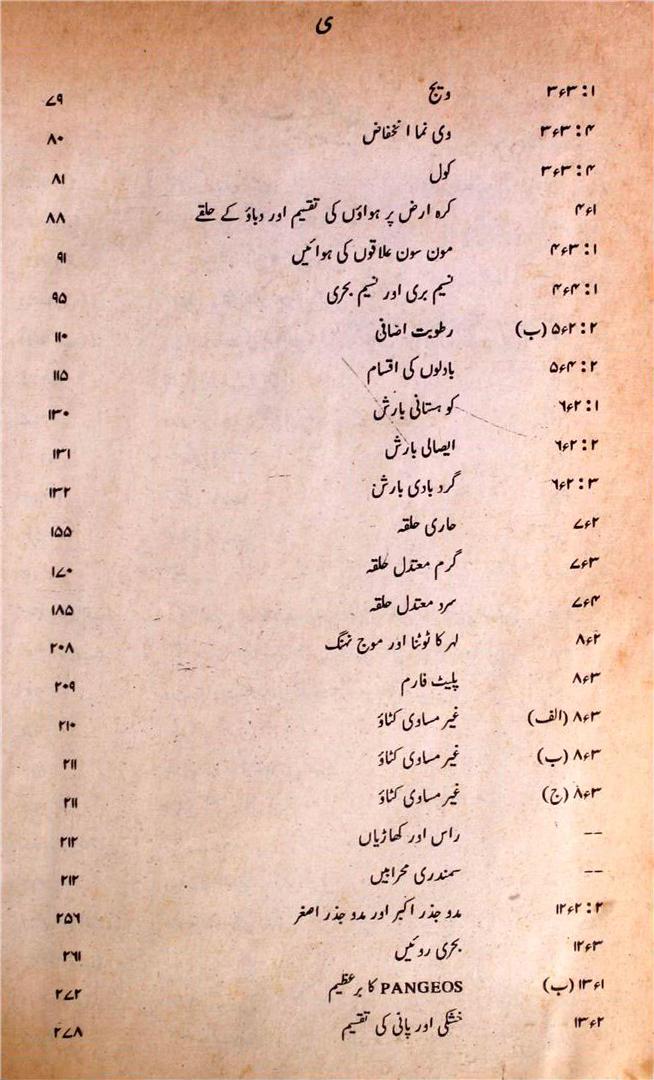 ی
۱ : ۳ء۳ ویج ۷۹
۴ : ۳ء۳ وی نما انخفاض ۸۰
۴ : ۳ء۳ کول ۸۱
۴ء۱ کرہ ارض پر ہواؤں کی تقسیم اور دباؤ کے حلقے ۸۸
۱ : ۴ء۳ مون سون علاقوں کی ہوائیں ۹۱
۱ : ۴ء۴ نسیم بری اور نسیم بحری ۹۵
۲ : ۵ء۲ (ب) رطوبت اضافی ۱۱۰
۲ : ۵ء۴ بادلوں کی اقسام ۱۱۵
۱ : ۶ء۲ کوہستانی بارش ۱۳۰
۲ : ۶ء۲ ایصالی بارش ۱۳۱
۳ : ۶ء۲ گردبادی بارش ۱۳۲
۷ء۲ حاری حلقہ ۱۵۵
۷ء۳ گرم معتدل حلقہ ۱۷۰
۷ء۴ سرد معتدل حلقہ ۱۸۵
۸ء۲ لہر کا ٹوٹنا اور موج نہنگ ۲۰۸
۸ء۳ پلیٹ فارم ۲۰۹
۸ء۳ (الف) غیر مساوی کٹاؤ ۲۱۰
۸ء۳ (ب) غیر مساوی کٹاؤ ۲۱۱
۸ء۳ (ج) غیر مساوی کٹاؤ ۲۱۱
-- راس اور کھاڑیاں ۲۱۲
-- سمندری محرابیں ۲۱۲
۲ : ۱۲ء۲ مدوجذر اکبر اور مدوجذر اصغر ۲۵۶
۱۲ء۳ بحری روئیں ۲۶۱
۱۳ء۱ (ب) PANGEOS کا برعظیم ۲۷۲
۱۳ء۲ خشکی اور پانی کی تقسیم ۲۷۸